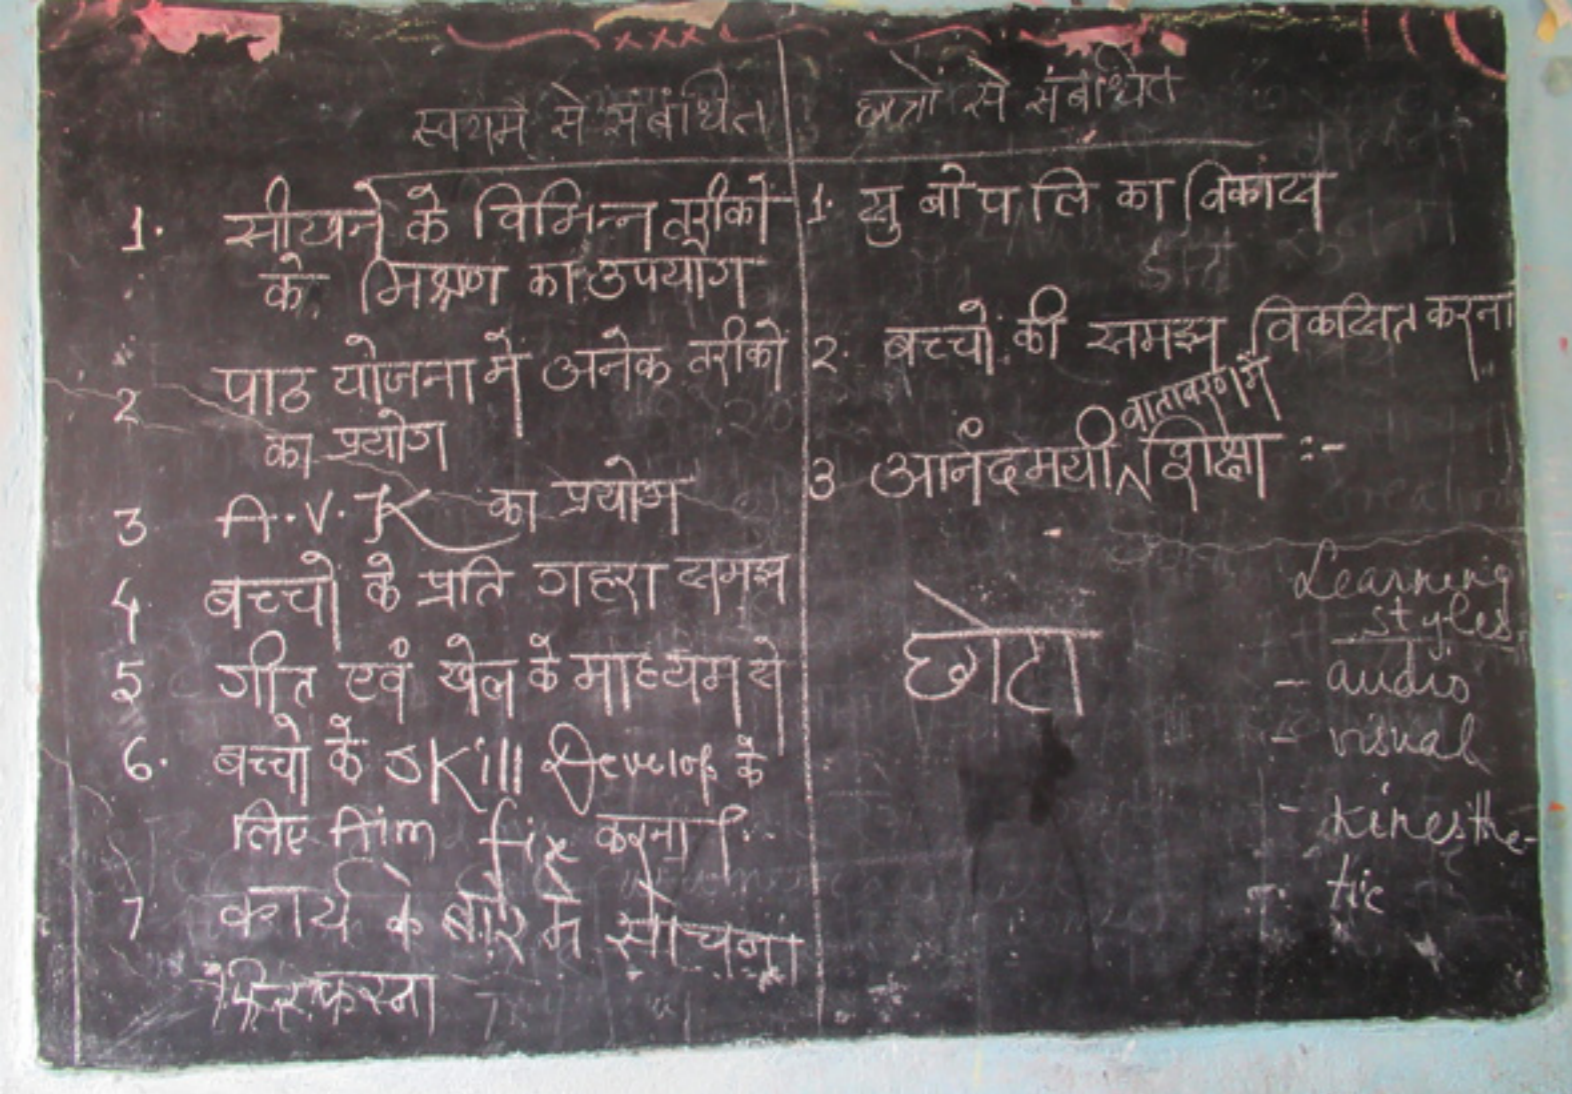 स्वयम से संबंधित
1. सीखने के विभिन्न तरीको
के मिश्रण का उपयोग
2 पाठ योजना में अनेक तरीको
का प्रयोग
3 A.V.K का प्रयोग
4. बच्चो के प्रति गहरा समझ
5 गीत एवं खेल के माध्यम से
6. बच्चो के Skill Develop के
लिए Aim fix करना।
7 कार्य के बारे मे सोचना
फिर करना
छात्रों से संबंधित
1. सु बो प लि का विकास
2. बच्चो की समझ विकसित करना
वातावरण में
3 आनंदमयी शिक्षा :-
छोटा
Learning
styles
- audio
- visual
- kinesthe-
tic